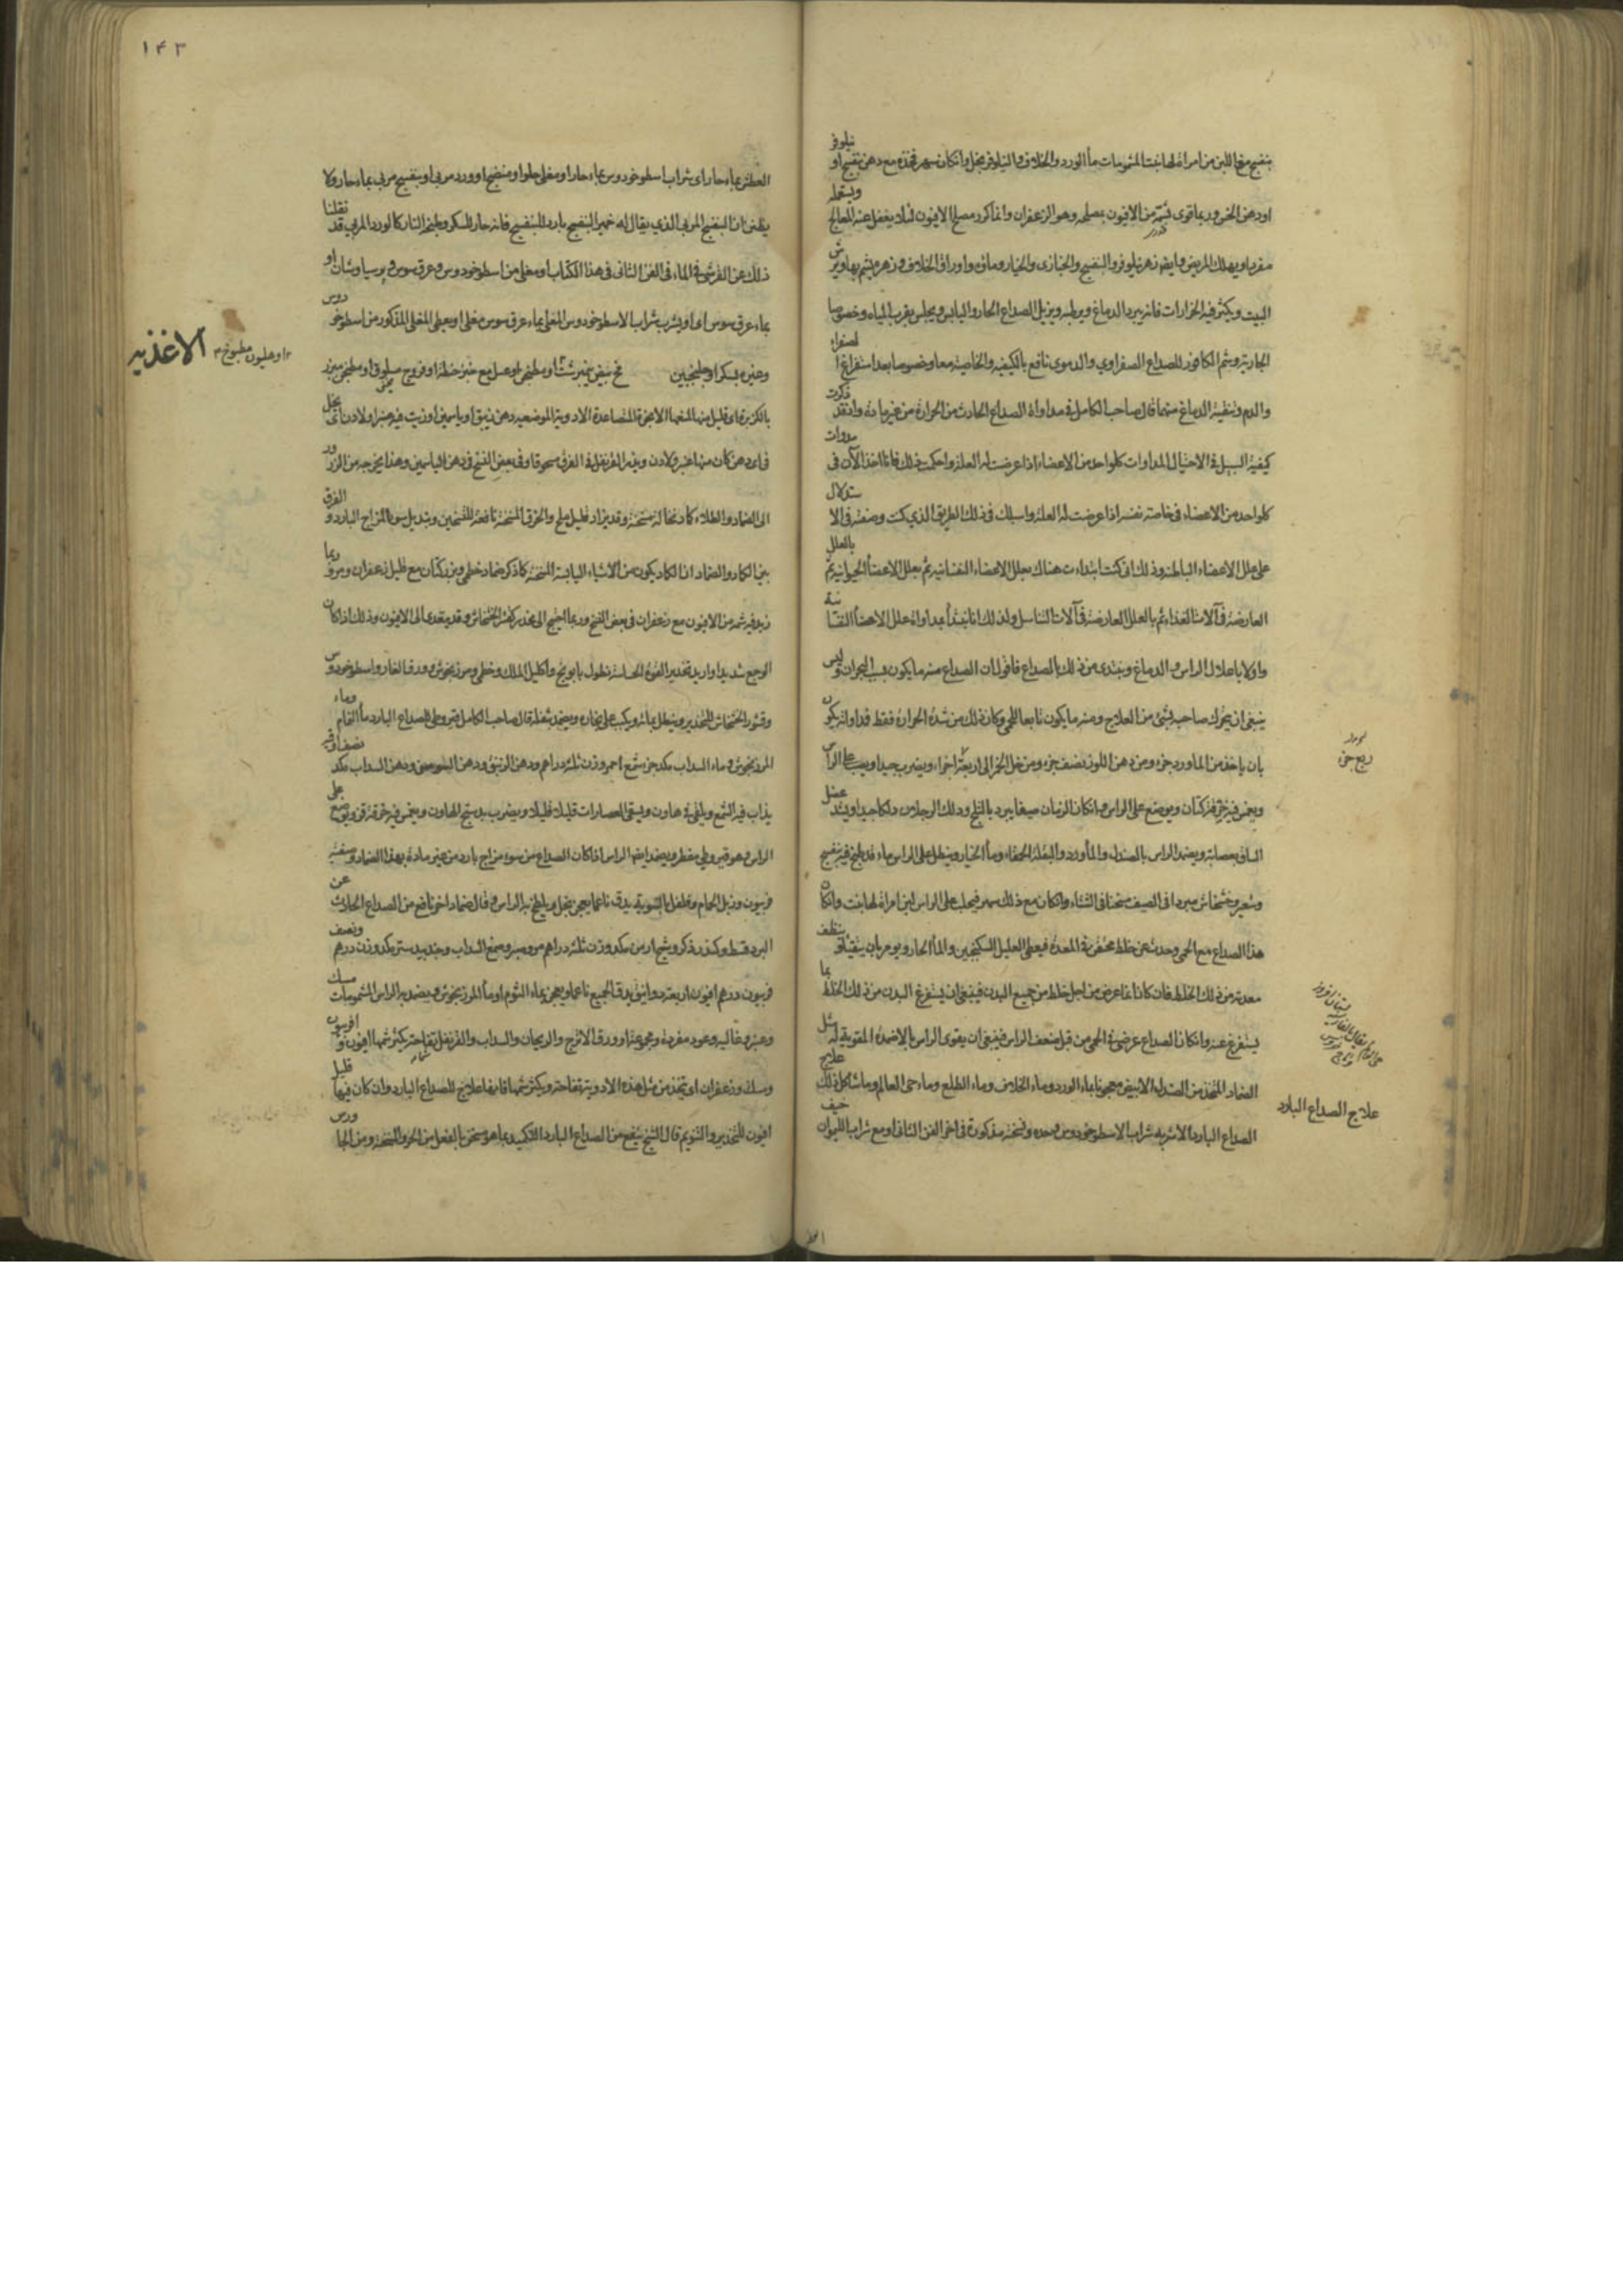 بنفسج مع اللبن من امراة لها بنت المشمومات ماء الورد والخلاف والنيلوفر بخل وان كان سهر فخذه مع دهن بنفسج او نيلوفر
او دهن الخس وربما قوى بشمة من الافيون بمصلحه وهو الزعفران وانما كرر مصلح الافيون لئلا يغفل عنه المعالج ويستعمله
مفردا ويهلك المريض وايضا زهر نيلوفر والبنفسج والخبازى والخيار وماؤه واوراق الخلاف وزهره يشم بها ويرش
البيت ويكثر فيه الخرارات فانه يبرد الدماغ ويرطبه ويزيل الصداع الحار واليابس ويجلس بقرب المياه وخصوصا
الجارية وشم الكافور للصداع الصفراوي والدموى نافع بالكيفية والخاصية معا وخصوصا بعد استفراغ الصفراء
والدم وتنقية الدماغ منهما قال صاحب الكامل فى مداواة الصداع الحادث من الحرارة من غير مادة واذ قد ذكرت
كيفية السبيل فى الاحتيال لمداوات كل واحد من الاعضاء اذا عرضت له العلة واحكمت ذلك فانا اخذ الآن فى مدوات
كل واحد من الاعضاء فى خاصة نفسه اذا عرضت له العلة واسلك فى ذلك الطريق الذي كنت وصفته فى الاستدلال
على علل الاعضاء الباطنة وذلك انى كنت ابتداءت هناك بعلل الاعضاء النفسانية ثم بعلل الاعضاء الحيوانية ثم بالعلل
العارضة فى آلات الغذاء ثم بالعلل العارضة فى آلات التناسل ولذلك انا نبتدأ بمداواة علل الاعضاء النفسانية
واولا باعلال الراس والدماغ ونبتدى من ذلك بالصداع فاقول ان الصداع منه ما يكون بسبب البحران وليس
ينبغى ان يحرك صاحبه بشئ من العلاج ومنه ما يكون تابعا للحمى وكان ذلك من شدة الحرارة فقط فداواته يكون
بان ياخذ من الماورد جزء ومن دهن اللوز نصف جزء ومن خل الخمر الى اربعة اجزاء ويضرب جيدا ويصب على الراس
ويغمس فيه خرقة كتان ويوضع على الراس وان كان الزمان صيفا يبرد بالثلج ودلك الرجلين دلكا جيدا ويشد عضل
الساق بعصابة ويضمد الراس بالصندل والماورد والبقلة الحمقاء وماء الخيار وينطل على الراس ماء قد طبخ فيه بنفسج
وشعير وخشخاش مبردا فى الصيف مسخنا فى الشتاء وان كان مع ذلك سهر فيحلب على الراس لبن امراة لها بنت وان كان
هذا الصداع مع الحمى وحدث عن خلط محتقن فى المعدة فيعطى العليل السكنجبين والماء الحار ويومر بان يتقيأ لتنظف
معدته من ذلك الخلط فان كان انما عرض من اجل خلط من جميع البدن فينبغى ان يستفرغ البدن من ذلك الخلط بما
يستفرغ عنه وان كان الصداع عرض فى الحمى من قبل ضعف الراس فينبغى ان يقوى الراس بالاضمدة المقوية له مثل
الضماد المتخذ من الصندل الابيض معجونا بماء الورد وماء الخلاف وماء الطلع وماء حى العالم وما شاكل ذلك علاج
الصداع البارد الاشربه شراب الاسطوخودوس وحده ونسخته مذكورة فى اخر الفن الثانى او مع شراب الليمون
ربع جزء
علاج الصداع البارد
١٤٣
العطر بماء حار اى شراب اسطوخودوس بماء حار او مغلى حلوا او منضج او ورد مربى او بنفسج مربى بماء حار ولا
يظن ان البنفسج المربى الذي يقال له خمير البنفسج بارد للبنفسج فانه حار للسكر وطبخ النار كالورد المربى قد نقلنا
ذلك عن القرشى فى الماء فى الفن الثانى فى هذا الكتاب او مغلى من اسطوخودوس وعرق سوس وبرسياوشان او
بماء عرق سوس اى او يشرب شراب الاسطوخودوس المغلى بماء عرق سوس مغلى او يعطى المغلى المذكور من اسطوخودوس
وغيره بسكر او جلنجبين مح بيض نيمبرشت او مطجن او عسل مع خبز حنطة او فروج مسلوق او مطجن مبزر
الاغذيه
او هليون مطبوخ
بالكزبرة اى قليل منها لمنعها الابخرة المتصاعدة الادوية الموضعيه دهن زنبق او ياسمين او زيت فيه عنبر او لادن اى يحل
فى اى دهن كان منها عنبر ولادن ويذر القرنفل فى الفرق مسحوقا وفى بعض النسخ فى دهن الياسمين وهذا يخرجه من الزرور
الى الضماد والطلاء كاد نخالة مسخنة وقد يزاد قليل ملح والخرق المسخنة نافعة للتسخين وتبديل سوء المزاج البارد والفرق
بين الكماد والضماد ان الكماد يكون من الاشياء اليابسة المسخنة كما ذكر ضماد خطمى وبزر كتان مع قليل زعفران ومر وربما
زيد فيه شمه من الافيون مع زعفران فى بعض النسخ وربما احتيج الى مخدر كقشر الخشخاش وقد يتعدى الى الافيون وذلك اذا كان
الوجع شديدا واريد تخدير القوة الحساسة نطول بابونج واكليل الملك وخطمى ومرزنجوش وورق الغار واسطوخودوس
وقشور الخشخاش للتخدير وينطل بمائه ويكب على بخاره ويضمد بثفله قال صاحب الكامل قيروطى للصداع البارد ماء النمام وماء
المرزنجوش وماء السداب مكد جزء شمع احمر وزن ثلثة دراهم ودهن الزنبق ودهن السوسن ودهن السداب مكد نصف اوقيه
يذاب فيه الشمع ويلقى فى هاون ويسقى العصارات قليلا قليلا ويضرب بدستج الهاون ويغمس فيه خرقة قز ويوضع على
الراس وهو قيروطى مفطر ويضمد ايضا الراس اذا كان الصداع من سوء مزاج بارد من غير مادة بهذا الضماد وصفته
فربيون وزبل الحمام وفلفل بالتسوية يدق ناعما يعجن بخل ويلطخ به الراس وقال ضماد اخر نافع من الصداع الحادث عن
البرد قسط وكندر ذكر وشيح ارمنى مكد وزن ثلثة دراهم مر وصبر وصمغ السداب وجندبيدستر مكد وزن درهم ونصف
فربيون درهم افيون اربعة دوانيق يدق الجميع ناعما ويعجن بماء الثوم او ماء المرزنجوش ويضمد به الراس المشمومات مسك
وعنبر وغاليه وعود مفردة ومجموعة او ورق الاترج والريحان والسداب والقرنفل تفاحة يكثر شمها افيون وافربيون
ومسك وزعفران اى يتخذ من مثل هذه الادوية تفاحة ويكثر شمها فانها علاج للصداع البارد وان كان فيها قليل
افيون للتخدير والتنويم قال الشيخ ينفع من الصداع البارد التكميد بما هو مسخن بالفعل من الخرق المسخنة ومن الجاورس